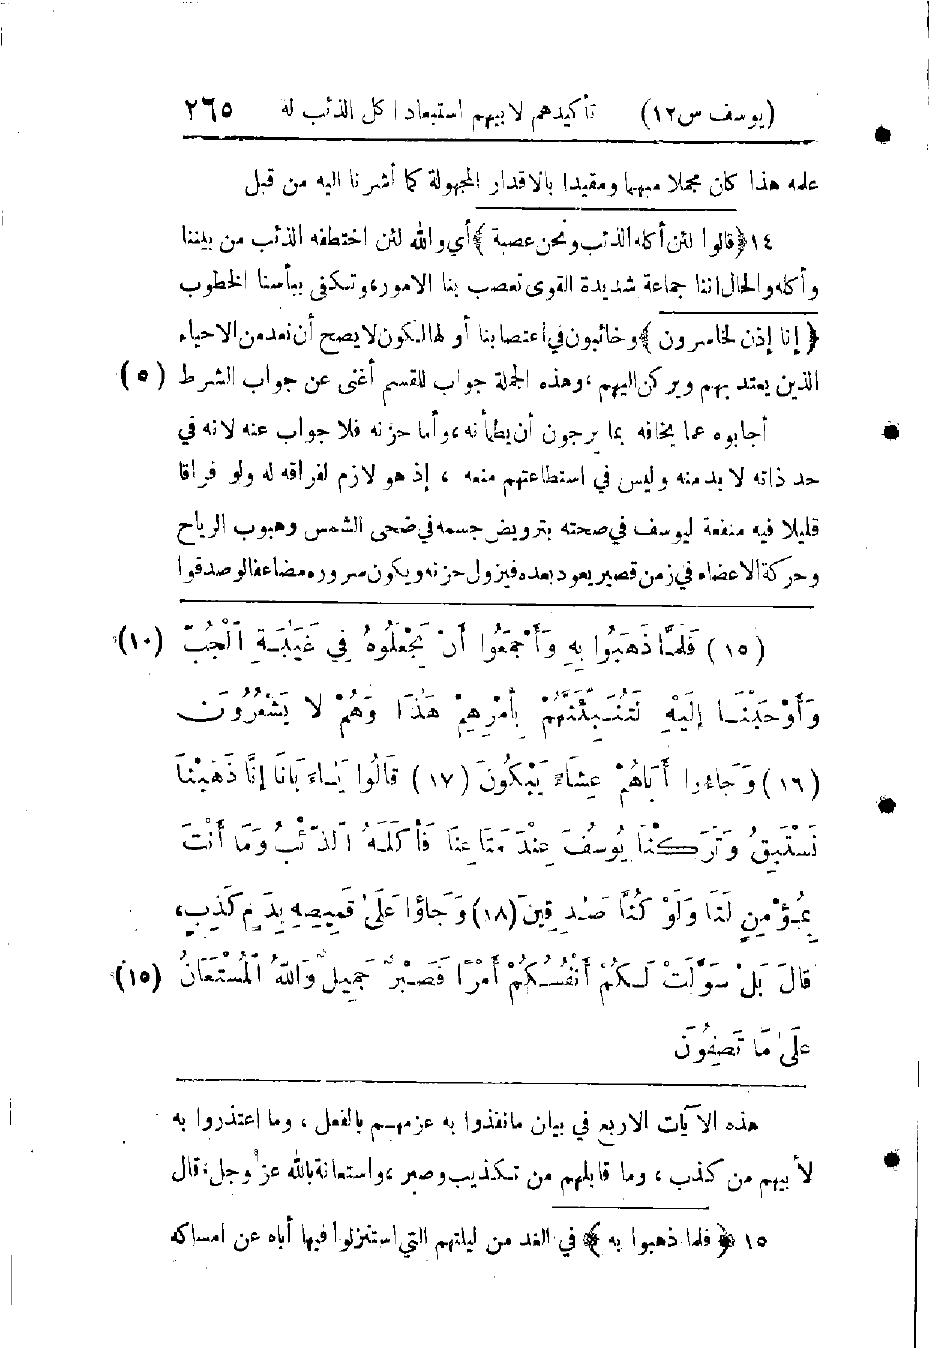 (يوسف س١٢) تأكيدهم لابيهم استبعاد اكل الذئب له ٢٦٥
علمه هذا كان مجملا مبهما ومقيدا بالاقدار المجهولة كما أشرنا اليه من قبل
١٤ ﴿قالوا لئن أكله الذئب ونحن عصبة﴾ أي والله لئن اختطفه الذئب من بيننا
وأكله والحال اننا جماعة شديدة القوى تعصب بنا الامور، وتكفى ببأسنا الخطوب
﴿ إنا إذن لخاسرون ﴾ وخائبون في اعتصابنا أو لهالكون لا يصح أن نعد من الاحياء
الذين يعتد بهم ويركن اليهم، وهذه الجملة جواب للقسم أغنى عن جواب الشرط (٥)
أجابوه عما يخافه بما يرجون أن يطمأنه، وأما حزنه فلا جواب عنه لانه في
حد ذاته لا بد منه وليس في استطاعتهم منعه ، إذ هو لازم لفراقه له ولو فراقا
قليلا فيه منفعة ليوسف في صحته بترويض جسمه في ضحى الشمس وهبوب الرياح
وحركة الاعضاء في زمن قصير يعود بعده فيزول حزنه ويكون سروره مضاعفا لو صدقوا
(١٥) فَلَمَّا ذَهَبُوا بِهِ وَأَجْمَعُوا أَنْ يَجْعَلُوهُ فِي غَيَٰبَةِ الْجُبِّ (١٠)
وَأَوْحَيْنَا إِلَيْهِ لَتُنَبِّئَنَّهُمْ بِأَمْرِهِمْ هَٰذَا وَهُمْ لَا يَشْعُرُونَ
(١٦) وَجَاءُوا أَبَاهُمْ عِشَاءً يَبْكُونَ (١٧) قَالُوا يَٰـأَبَانَا إِنَّا ذَهَبْنَا
نَسْتَبِقُ وَتَرَكْنَا يُوسُفَ عِنْدَ مَتَاعِنَا فَأَكَلَهُ الذِّئْبُ وَمَا أَنْتَ
بِمُؤْمِنٍ لَنَا وَلَوْ كُنَّا صَٰدِقِينَ (١٨) وَجَاؤُا عَلَىٰ قَمِيصِهِ بِدَمٍ كَذِبٍ،
قَالَ بَلْ سَوَّلَتْ لَكُمْ أَنْفُسُكُمْ أَمْرًا فَصَبْرٌ جَمِيلٌ وَاللهُ الْمُسْتَعَانُ (١٥)
عَلَىٰ مَا تَصِفُونَ
هذه الآيات الاربع في بيان ما نفذوا به عزمهم بالفعل ، وما اعتذروا به
لأبيهم من كذب ، وما قابلهم من تكذيب وصبر ، واستعانة بالله عز وجل، قال
١٥ ﴿ فلما ذهبوا به ﴾ في الغد من ليلتهم التي استنزلوا فيها أباه عن امساكه